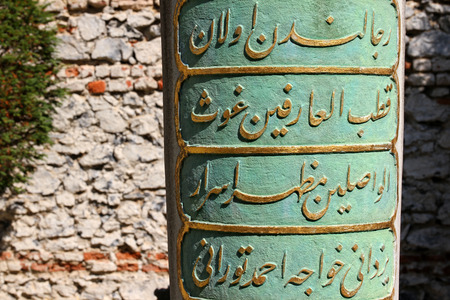 رجالندن اولان
قطب العارفین غوث
الواصلین مظهر اسرار
یزدانی خواجه احمد تورانی